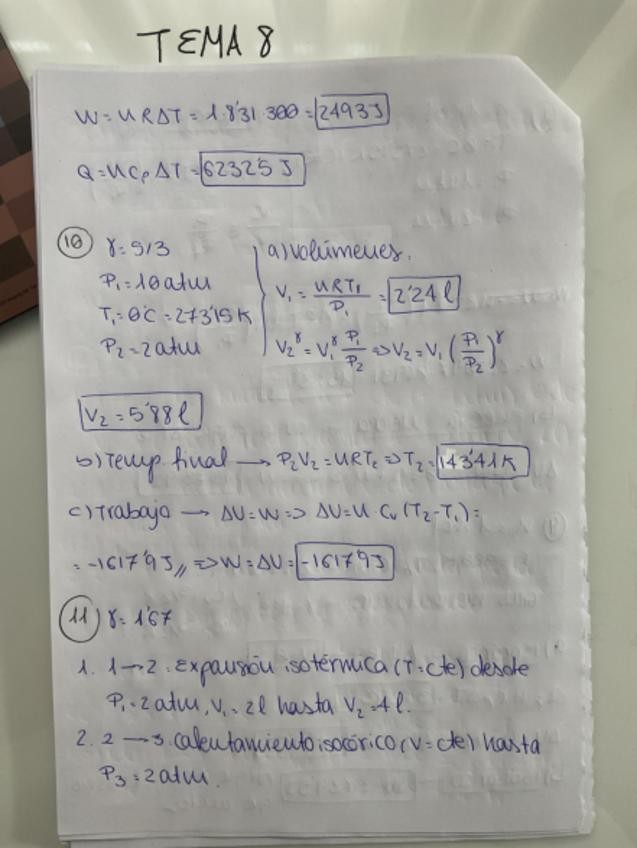 TEMA 8
W = nRΔT = 1·8'31·300 = 2493J
Q = nCpΔT = 6232'5 J
10 γ = 5/3
P1 = 10 atm
T1 = 0ºC = 273'15 K
P2 = 2 atm
a) Volúmenes.
V1 = nRT1/P1 = 2'24 l
V2^γ = V1^γ P1/P2 => V2 = V1 (P1/P2)^γ
V2 = 5'88 l
b) Temp. final → P2V2 = nRT2 => T2 = 143'41 K
c) Trabajo → ΔU = W => ΔU = n·Cv(T2-T1) =
= -1617'9 J,, => W = ΔU = -1617'9J
11 γ = 1'67
1. 1→2. Expansión isotérmica (T = cte) desde
P1 = 2 atm, V1 = 2l hasta V2 = 4 l.
2. 2 → 3. calentamiento isocórico (V = cte) hasta
P3 = 2 atm.